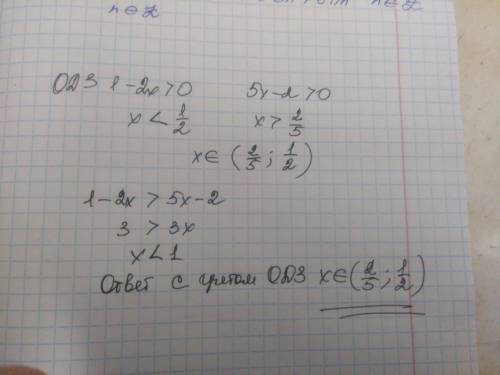 n∈Z n∈Z
ОДЗ 1-2x>0 5x-2>0
x < 1/2 x > 2/5
x∈ (2/5; 1/2)
1-2x > 5x-2
3 > 3x
x<1
Ответ с учетом ОДЗ x∈(2/5; 1/2)